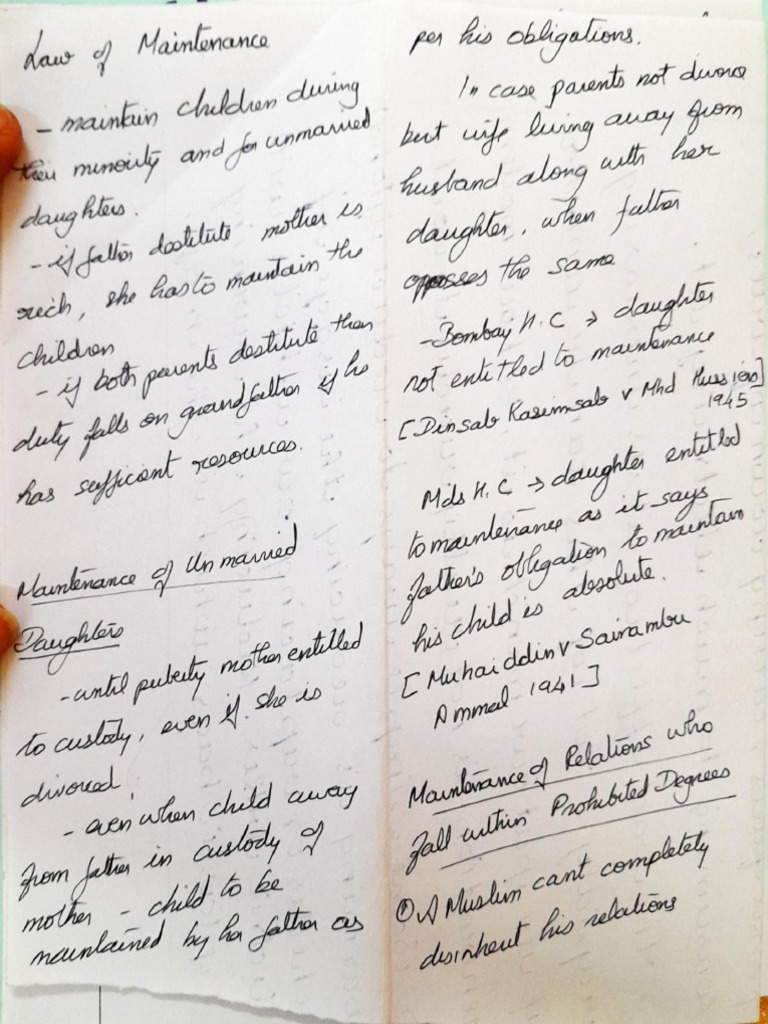 Law of Maintenance
- maintain children during
their minority and for unmarried
daughters.
- if father destitute mother is
rich, she has to maintain the
children
- if both parents destitute then
duty falls on grandfather if he
has sufficient resources.
Maintenance of Unmarried
Daughters
- until puberty mother entitled
to custody, even if she is
divorced.
- even when child away
from father in custody of
mother - child to be
maintained by her father as
per his obligations.
In case parents not divorce
but wife living away from
husband along with her
daughter, when father
opposes the same
- Bombay H.C → daughter
not entitled to maintenance
[Dinsab Kasimsab v Mhd Hussien]
1945
Mds H.C → daughter entitled
to maintenance as it says
father's obligation to maintain
his child is absolute.
[Muhaiddin v Sairambu
Ammal 1941]
Maintenance of Relations who
fall within Prohibited Degrees
① A Muslim cant completely
disinherit his relations